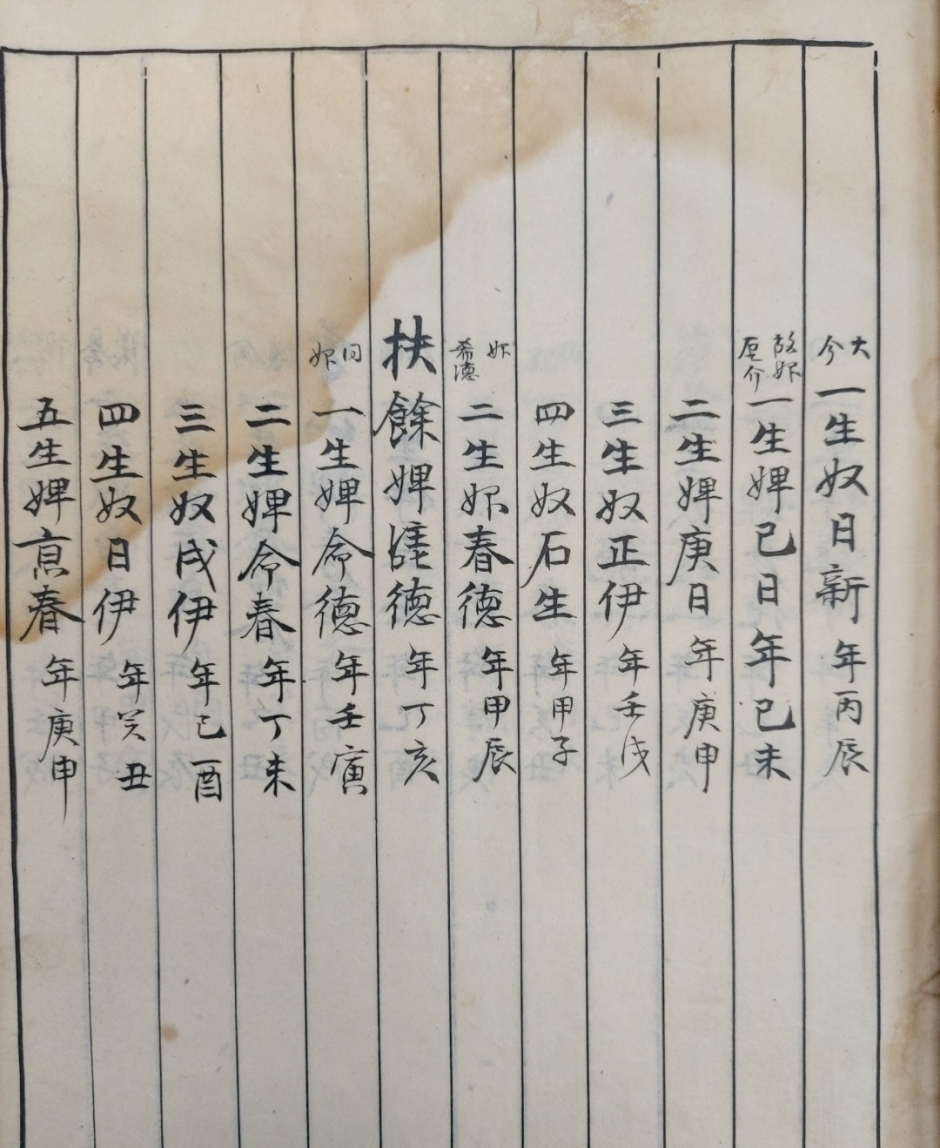 大今一生奴日新 年丙辰
一生婢己日年己未
二生婢庚日 年庚申
三生奴正伊 年壬戌
四生奴石生 年甲子
希德二生婢春德 年甲辰
扶餘婢德 年丁亥
同婢一生婢命德 年壬寅
二生婢命春 年丁未
三生奴戌伊 年己酉
四生奴日伊 年癸丑
五生婢春 年庚申